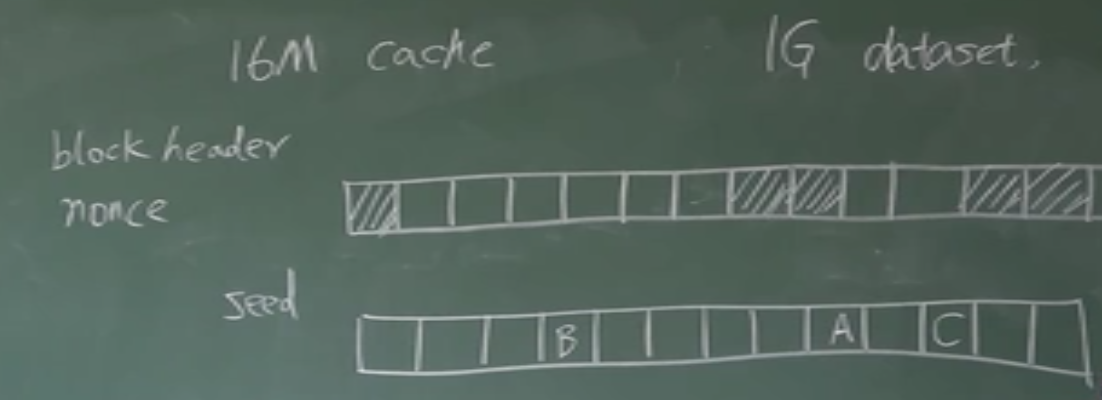 16M cache 1G dataset.
block header
nonce
seed
B A C